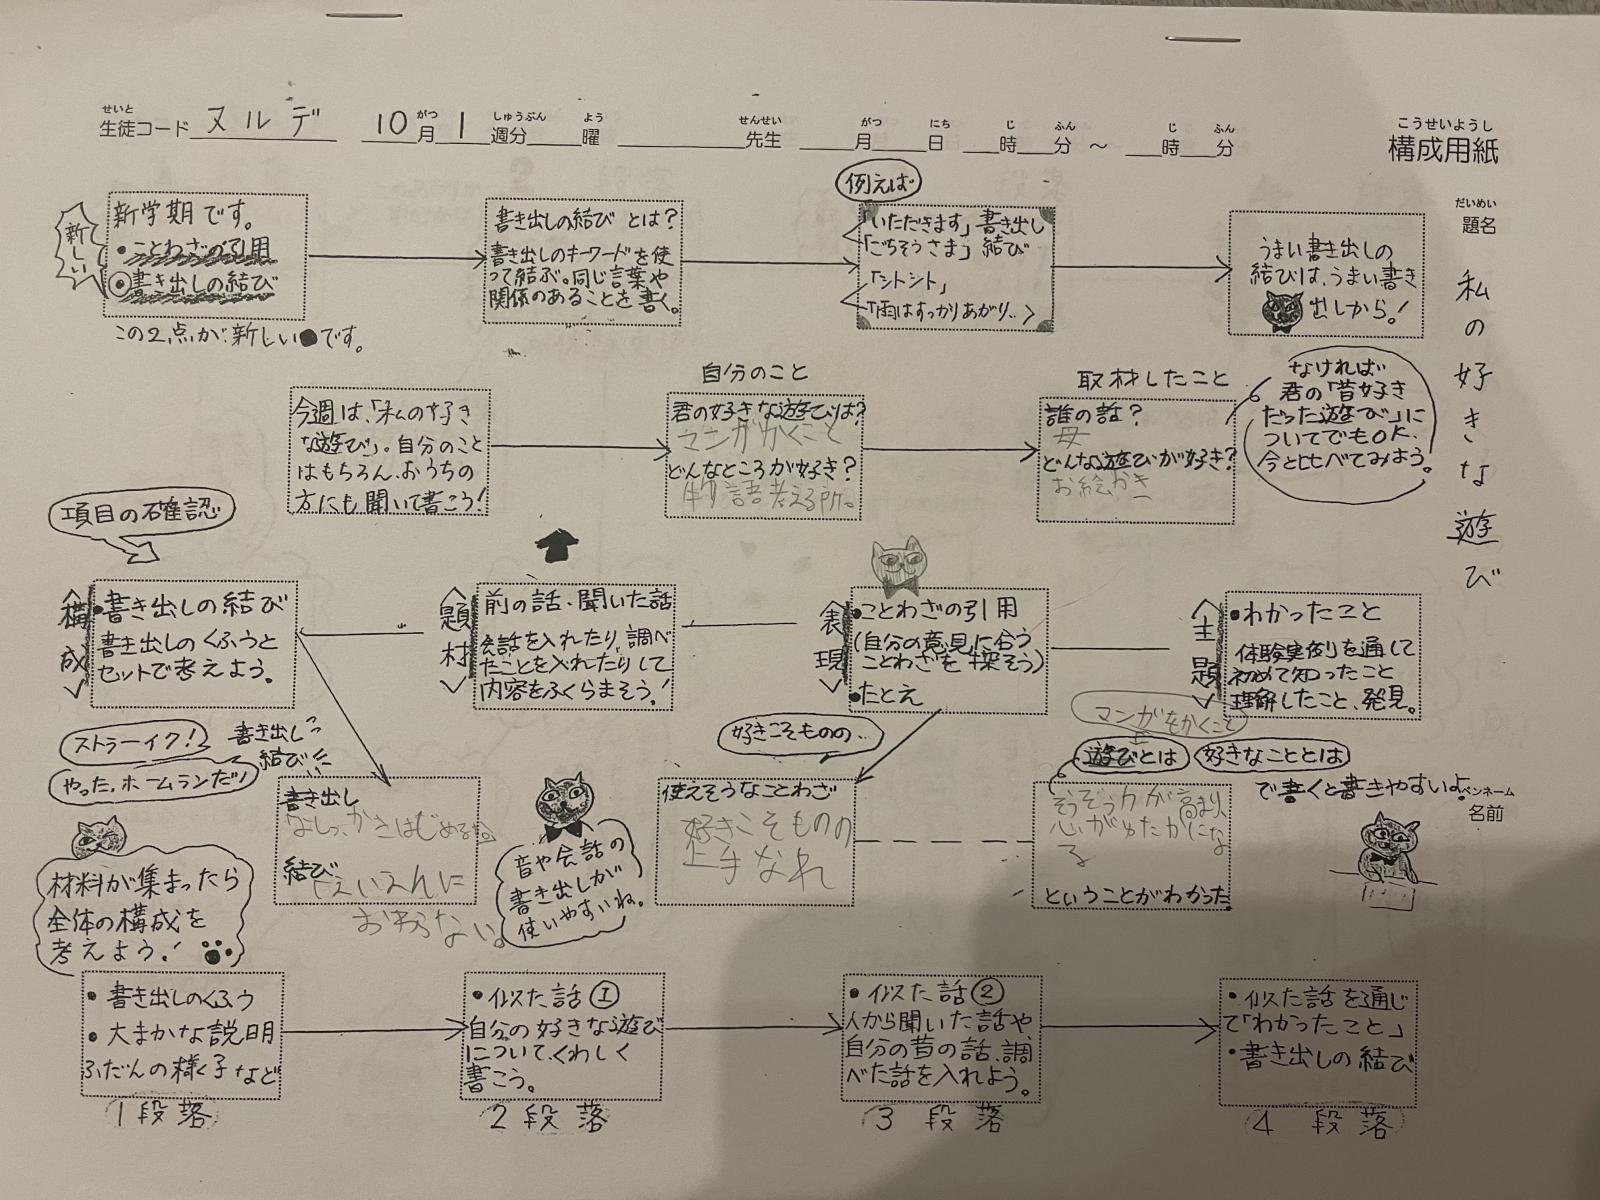 せいと
生徒コード ヌルデ 10 月 1 週分 曜 先生 月 日 時 分 ～ 時 分
がつ しゅうぶん よう せんせい がつ にち じ ふん じ ふん
こうせいようし
構成用紙
だいめい
題名
私の好きな遊び
新しい
新学期です。
・ことわざの引用
・書き出しの結び
この2点が新しい です。
書き出しの結び とは?
書き出しのキーワードを使
って結ぶ。同じ言葉や
関係のあることを書く。
例えば
「いただきます」書き出し
「ごちそうさま」結び
「シトシト」
「雨はすっかりあがり‥>
うまい書き出しの
結びは、うまい書き
出しから!
今週は、「私の好き
な遊び」。自分のこと
はもちろん、おうちの
方にも聞いて書こう!
自分のこと
君の好きな遊びは?
マンガかくこと
どんなところが好き?
物語考える所。
取材したこと
誰の話?
母
どんな遊びが好き?
お絵かき
なければ
君の「昔好き
だった遊び」に
ついてでもOK、
今と比べてみよう。
項目の確認
<構成>
・書き出しの結び
書き出しのくふうと
セットで考えよう。
<題材>
前の話、聞いた話
会話を入れたり、調べ
たことを入れたりして
内容をふくらまそう!
<表現>
・ことわざの引用
(自分の意見に合う
ことわざを探そう)
・たとえ
<主題>
・わかったこと
体験実例を通して
初めて知ったこと
理解したこと、発見。
ストラーイク!
やった、ホームランだ!
書き出し
結び
書き出し
なしっ、かきはじめるね
結び
えいえんに
おわらない。
音や会話の
書き出しが
使いやすいね。
好きこそものの‥
使えそうなことわざ
好きこそものの
上手なれ
マンガをかくこと
遊びとは 好きなこととは
で書くと書きやすいよ。
そうぞう力が高まり、
心がゆたかにな
る
ということがわかった。
ペンネーム
名前
材料が集まったら
全体の構成を
考えよう!
・書き出しのくふう
・大まかな説明
ふだんの様子など
1段落
・似た話①
自分の好きな遊び
について、くわしく
書こう。
2段落
・似た話②
人から聞いた話や、
自分の昔の話、調
べた話を入れよう。
3段落
・似た話を通じ
て「わかったこと」
・書き出しの結び
4段落